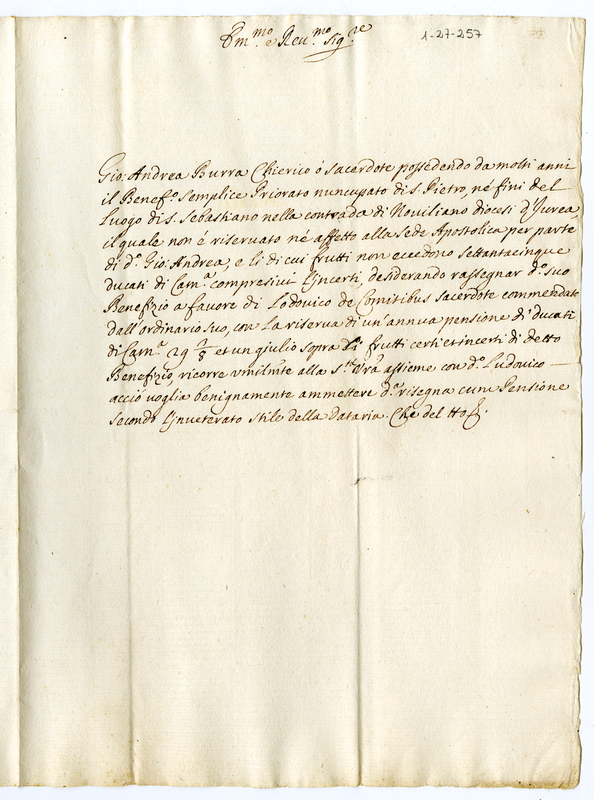 Em.mo e Reu.mo Sig.re
1-27-257
Gio: Andrea Burra Chierico ó sacerdote possedendo da molti anni
il Benef.o semplice Priorato nuncupato di S. Pietro, né fini del
Luogo di S. Sebastiano nella contrada di Nouiliano diocesi d'Jurea,
il quale non é riservato né affetto alla sede Apostolica per parte
di d.o Gio: Andrea, e li di cui frutti non eccedono settantacinque
ducati di Cam.a compresivi l'incerti, desiderando rassegnar d.o suo
Benefizio a favore di Lodovico de Comitibus sacerdote commendato
dall'ordinario suo, con la riserva di un'annua pensione di ducati
di Cam.a 29 1/8 et un giulio sopra li frutti certi et incerti di detto
Benefizio, ricorre vmilmte alla S.tà Vra assieme con d.o Ludovico
acció voglia benignamente ammettere d.a risegna cum Pensione
secondo l'inveterato stile della Dataria. Che del